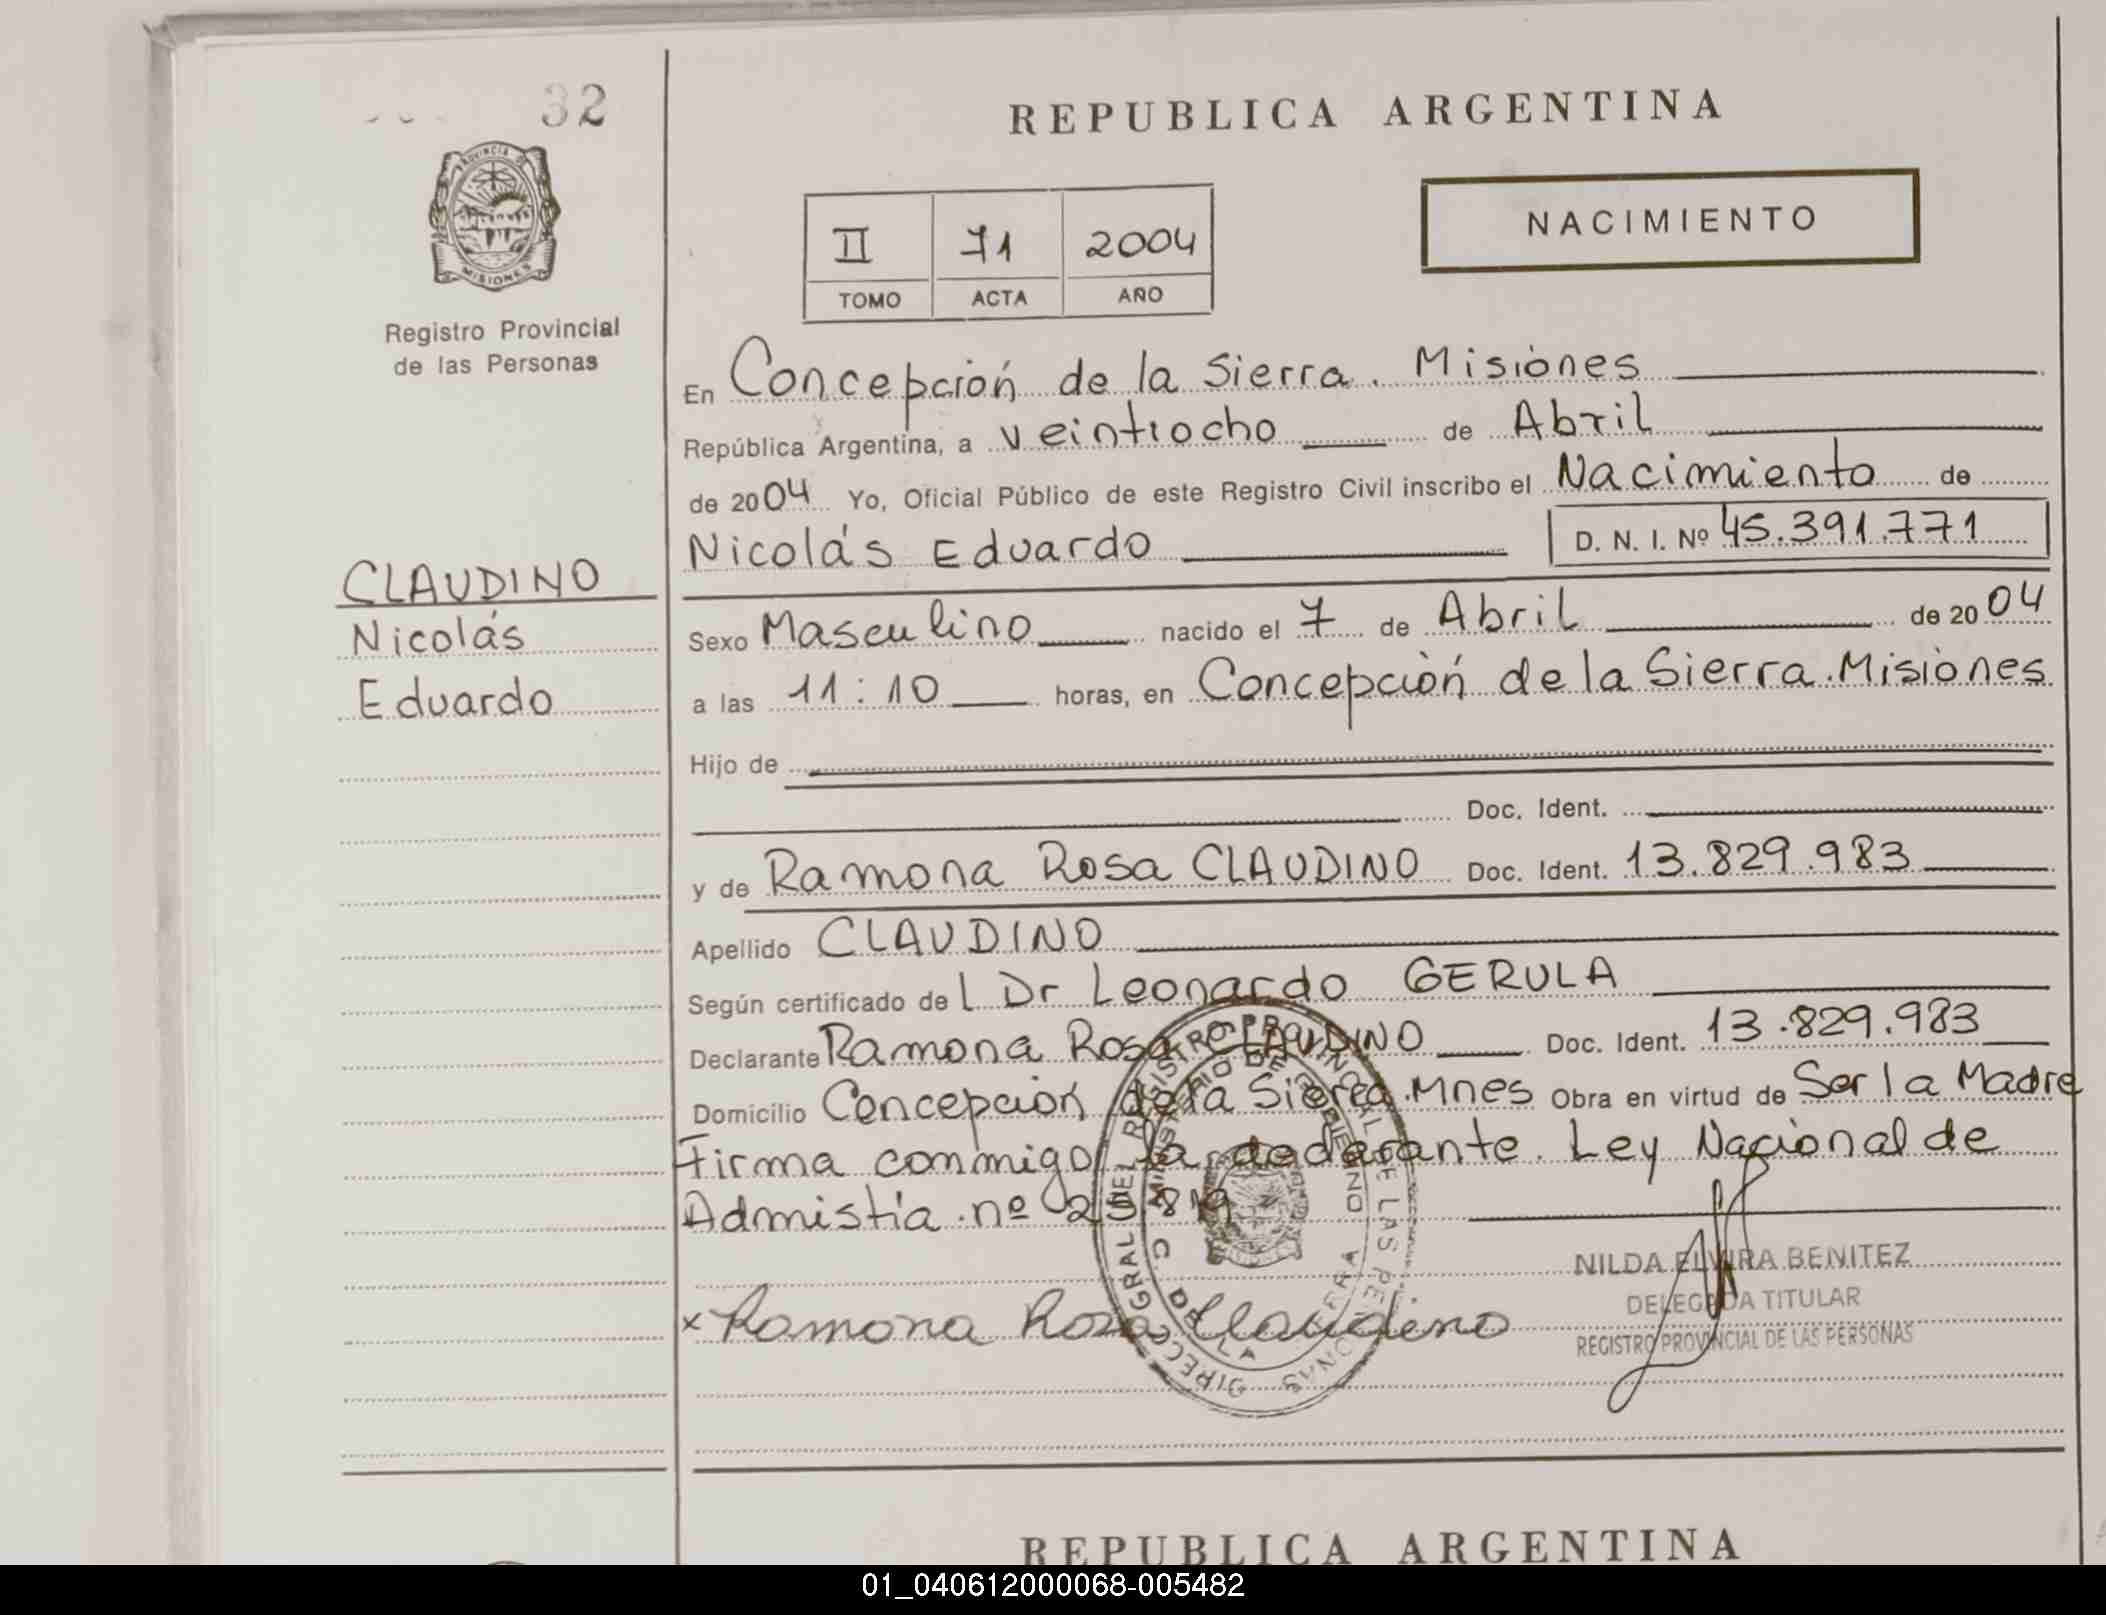 32
PROVINCIA DE
MISIONES
Registro Provincial
de las Personas
CLAUDINO
Nicolás
Eduardo
REPUBLICA ARGENTINA
II 71 2004
TOMO ACTA AÑO
NACIMIENTO
En Concepción de la Sierra. Misiones
República Argentina, a veintiocho de Abril
de 2004 Yo, Oficial Público de este Registro Civil inscribo el Nacimiento de
Nicolás Eduardo D. N. I. Nº 45.391.771
Sexo Masculino nacido el 7 de Abril de 2004
a las 11:10 horas, en Concepción de la Sierra. Misiones
Hijo de
Doc. Ident.
y de Ramona Rosa CLAUDINO Doc. Ident. 13.829.983
Apellido CLAUDINO
Según certificado del Dr Leonardo GERULA
Declarante Ramona Rosa CLAUDINO Doc. Ident. 13.829.983
Domicilio Concepción de la Sierra. Mnes Obra en virtud de Ser la Madre
Firma conmigo la declarante. Ley Nacional de
Admistía. nº 25.819
x Ramona Rosa Claudino
NILDA ELVIRA BENITEZ
DELEGADA TITULAR
REGISTRO PROVINCIAL DE LAS PERSONAS
DIREC. GRAL DEL REGISTRO PROVINCIAL DE LAS PERSONAS
MINISTERIO DE GOBIERNO
C. DE LA SIERRA
REPUBLICA ARGENTINA
01_040612000068-005482